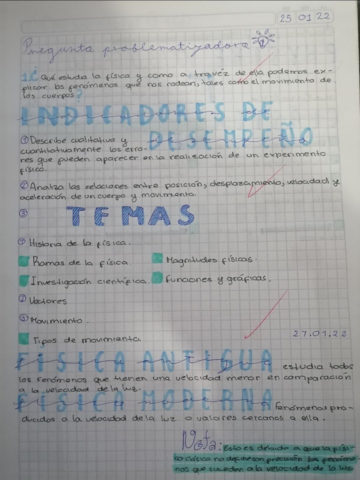 25 01 22
Pregunta problematizadora
1. ¿Qué estudia la física y como a travéz de ella podemos ex-
plicar los fenómenos que nos rodean, tales como el movimiento de
los cuerpos?
INDICADORES DE
DESEMPEÑO
① Describe cualitativa y
cuantitativamente los erro-
res que pueden aparecer en la realización de un experimento
físico.
② Analiza las relaciones entre posición, desplazamiento, velocidad y
aceleración de un cuerpo y movimiento.
TEMAS
① Historia de la física.
Ramas de la física
Magnitudes físicas.
Investigación científica
Funciones y gráficas.
② Vectores
③ Movimiento.
Tipos de movimiento.
27.01.22
FISICA ANTIGUA estudia todos
los fenómenos que tienen una velocidad menor en comparación
a la velocidad de la luz.
FISICA MODERNA fenómenos pro-
ducidos a la velocidad de la luz o valores cercanos a ella.
Nota: Esto es debido a que la
que suceden a la velocidad de la luz